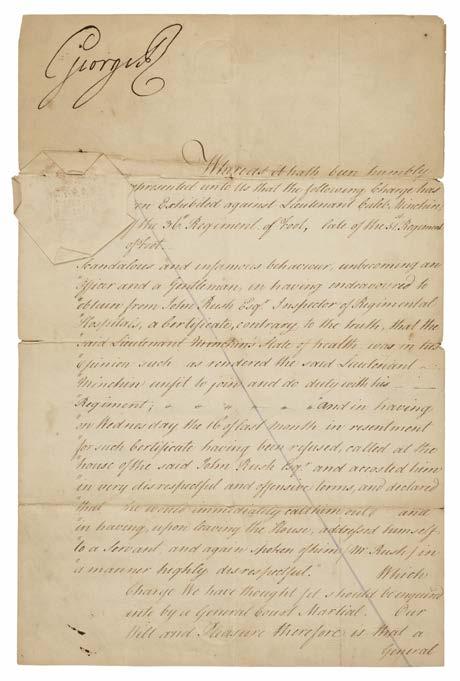 George R
Whereas it hath been humbly
represented unto Us that the following Charge has
been Exhibited against Lieutenant Caleb Minchin,
of the 36th Regiment of Foot, late of the 31st Regiment
of Foot.
Scandalous and infamous behaviour, unbecoming an
"Officer and a Gentleman, in having endeavoured to
"obtain from John Rush Esqr. Inspector of Regimental
"Hospitals, a Certificate, contrary to the truth, that the
said Lieutenant Minchin's State of health was in his
"Opinion such as rendered the said Lieutenant
"Minchin unfit to join and do duty with his
"Regiment; " " " " " "and in having
"on Wednesday the 16th of last month in resentment
"for such Certificate having been refused, called at the
"house of the said John Rush Esqr. and accosted him
"in very disrespectful and offensive terms, and declared
"that he would immediately call him out; and
"in having, upon leaving the House, addressed himself
"to a Servant, and again spoken of him (Mr. Rush) in
"a manner highly disrespectful." Which
Charge We have thought fit should be enquired
into by a General Court Martial. Our
Will and Pleasure therefore is that a
General